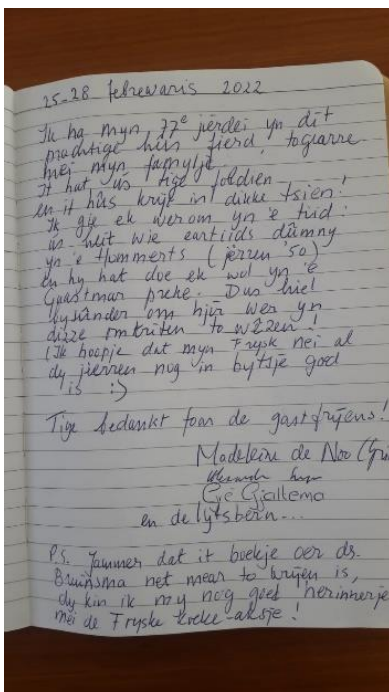 25-28 febrewaris 2022
Ik ha myn 77e jierdei yn dit
prachtige hûs fierd, togearre
mei myn famylje.
It hat ús tige foldien
en it hûs krijt in dikke tsien!
Ik gie ek werom yn 'e tiid:
ús heit wie eartiids dûmny
yn 'e Hommerts (jierren '50)
en hy hat doe ek wol yn 'e
Gaastmar preke. Dus hiel
bysûnder om hjir wer yn
dizze omkriten to wêzen!
(Ik hoopje dat myn Frysk nei al
dy jierren nog in bytsje goed
is :)
Tige bedankt foar de gastfrijens!
Madeleine de Noo
Gjaltema
en de lytsbern...
P.S. Jammer dat it boekje oer ds.
Bruinsma net mear to krijen is,
dy kin ik my nog goed herinnerje
mei de Fryske koeke-aksje!